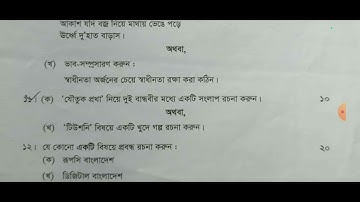 আকাশ যদি বজ্র নিয়ে মাথায় ভেঙে পড়ে
ঊর্ধ্বে দু'হাত বাড়াস।
অথবা,
(খ) ভাব-সম্প্রসারণ করুন :
স্বাধীনতা অর্জনের চেয়ে স্বাধীনতা রক্ষা করা কঠিন।
১১। (ক) 'যৌতুক প্রথা' নিয়ে দুই বান্ধবীর মধ্যে একটি সংলাপ রচনা করুন। ১০
অথবা,
(খ) 'টিউশনি' বিষয়ে একটি খুদে গল্প রচনা করুন।
১২। যে কোনো একটি বিষয়ে প্রবন্ধ রচনা করুন : ২০
(ক) রূপসি বাংলাদেশ
(খ) ডিজিটাল বাংলাদেশ